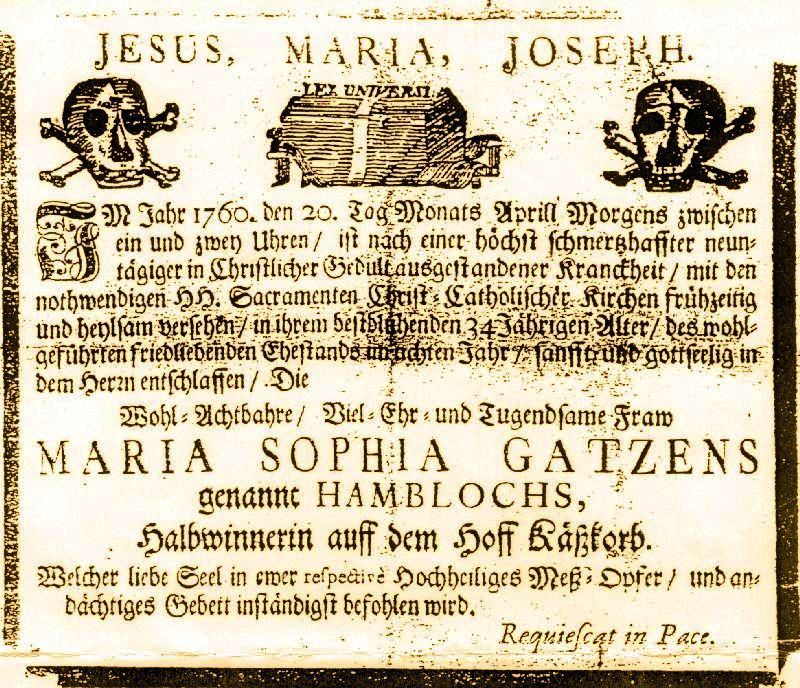 JESUS, MARIA, JOSEPH.
LEX UNIVERSI.
IM Jahr 1760. den 20. Tag Monats Aprill Morgens zwischen
ein und zwey Uhren / ist nach einer höchst schmertzhaffter neun-
tägiger in Christlicher Gedult ausgestandener Kranckheit / mit den
nothwendigen HH. Sacramenten Christ-Catholischer Kirchen frühzeitig
und heylsam versehen / in ihrem bestblühenden 34 Jährigen Alter / des wohl-
geführten friedliebenden Ehestands im achten Jahr / sanfft und gottseelig in
dem Herrn entschlaffen / Die
Wohl-Achtbahre / Viel-Ehr-und Tugendsame Fraw
MARIA SOPHIA GATZENS
genannt HAMBLOCHS,
Halbwinnerin auff dem Hoff Käßkorb.
Welcher liebe Seel in ewer respective Hochheiliges Meß-Opfer / und an-
dächtiges Gebett inständigst befohlen wird.
Requiescat in Pace.